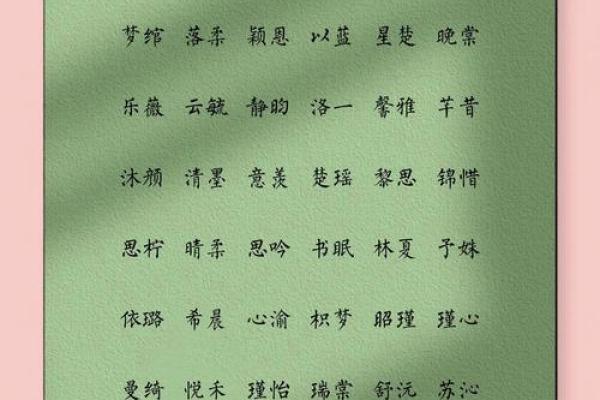 梦绾 落柔 颖恩 以蓝 星楚 晚棠
乐薇 云毓 静昀 洛一 馨雅 芊昔
沐颜 清墨 意羡 楚瑶 黎思 锦惜
思柠 晴柔 思吟 书眠 林夏 予姝
依璐 希晨 心渝 枳梦 昭瑾 瑾心
曼绮 悦禾 瑾怡 瑞棠 舒沅 苏沁